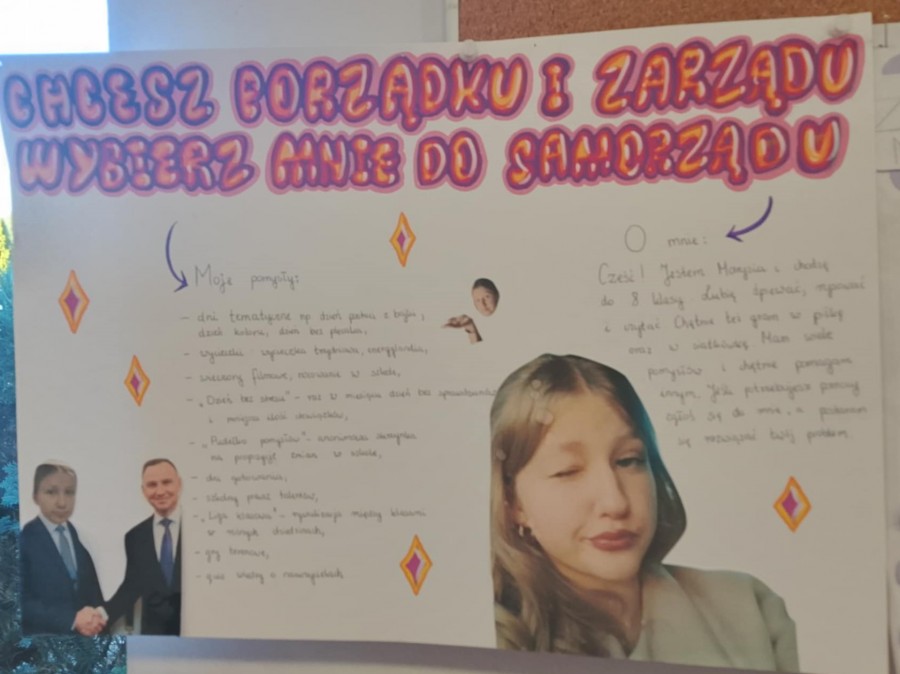 CHCESZ PORZĄDKU I ZARZĄDU
WYBIERZ MNIE DO SAMORZĄDU
Moje pomysły:
- dni tematyczne np dzień postaci z bajki,
dzień koloru, dzień bez plecaka,
- wycieczki - wycieczka tropikalna, energylandia,
- wieczory filmowe, nocowanie w szkole,
- „Dzień bez stresu" - raz w miesiącu dzień bez sprawdzianów
i mniejsza ilość obowiązków,
- „Pudełko pomysłów" - anonimowa skrzynka
na propozycje zmian w szkole,
- dni gotowania,
- szkolny pokaz talentów,
- „Liga klasowa" - rywalizacja między klasami
w różnych dziedzinach,
- gry terenowe,
- quiz wiedzy o nauczycielach
O mnie:
Cześć! Jestem Marysia i chodzę
do 8 klasy. Lubię śpiewać, rysować
i czytać. Chętnie też gram w piłkę
oraz w siatkówkę. Mam wiele
pomysłów i chętnie pomagam
innym. Jeśli potrzebujesz pomocy
zgłoś się do mnie, a postaram
się rozwiązać twój problem.